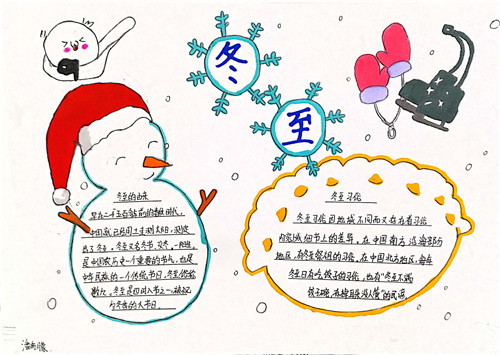 冬至
冬至的由来
早在二千五百多年前的春秋时代，
中国就已经用土圭观测太阳，测定
出了冬至，冬至又名冬节、
是中国农历中一个重要的节气，也是
中华民族的一个传统节日，冬至俗称
数九，冬至是四时八节之一，被视
为冬季的大节日。
冬至习俗
冬至习俗因地域不同而又存在着习俗
内容或细节上的差异，在中国南方沿海部分
地区，有冬至祭祖的习俗，在中国北方地区，每年
冬至日有吃饺子的习俗，也有“冬至不端
饺子碗，冻掉耳朵没人管”的民谣。